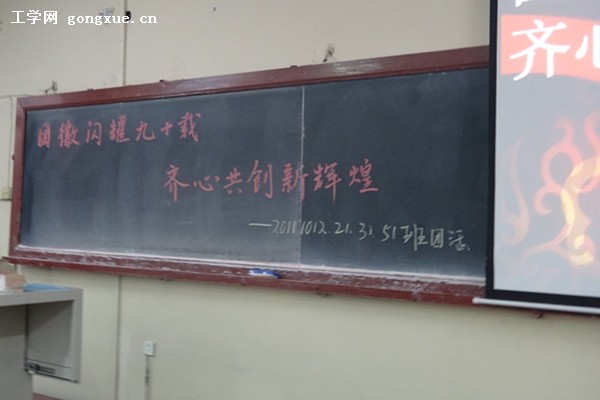 工学网 gongxue.cn
团徽闪耀九十载
齐心共创新辉煌
——20111012.21.31.51班团活
齐心